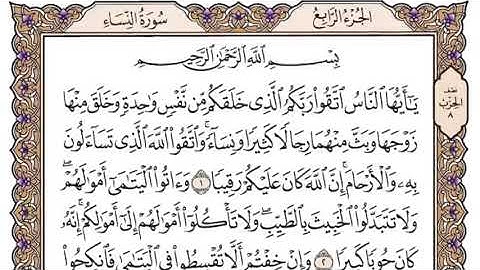 سُورَةُ النِّسَاءِ الجُزْءُ الرَّابِعُ
بِسْمِ اللَّهِ الرَّحْمَٰنِ الرَّحِيمِ
يَٰٓأَيُّهَا النَّاسُ اتَّقُوا۟ رَبَّكُمُ الَّذِى خَلَقَكُم مِّن نَّفْسٍ وَٰحِدَةٍ وَخَلَقَ مِنْهَا
زَوْجَهَا وَبَثَّ مِنْهُمَا رِجَالًا كَثِيرًا وَنِسَآءً ۚ وَاتَّقُوا۟ اللَّهَ الَّذِى تَسَآءَلُونَ
بِهِۦ وَالْأَرْحَامَ ۚ إِنَّ اللَّهَ كَانَ عَلَيْكُمْ رَقِيبًا ١ وَءَاتُوا۟ الْيَتَٰمَىٰٓ أَمْوَٰلَهُمْ ۖ
وَلَا تَتَبَدَّلُوا۟ الْخَبِيثَ بِالطَّيِّبِ ۖ وَلَا تَأْكُلُوٓا۟ أَمْوَٰلَهُمْ إِلَىٰٓ أَمْوَٰلِكُمْ ۚ إِنَّهُۥ
كَانَ حُوبًا كَبِيرًا ٢ وَإِنْ خِفْتُمْ أَلَّا تُقْسِطُوا۟ فِى الْيَتَٰمَىٰ فَانكِحُوا۟
نصف
الحِزْب
٨